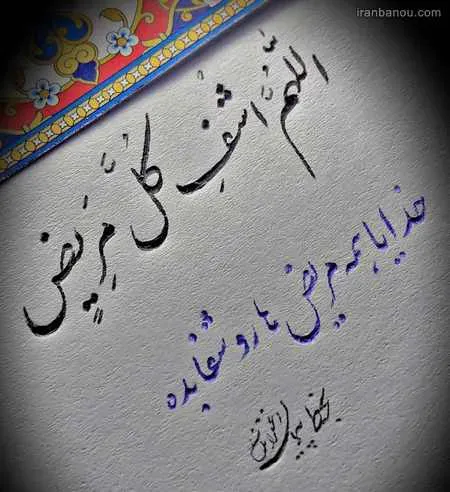 iranbanou.com
اللهُمَّ اشفِ كُلَّ مَرِيضٍ
خدایا همه مریض ها رو شفا بده